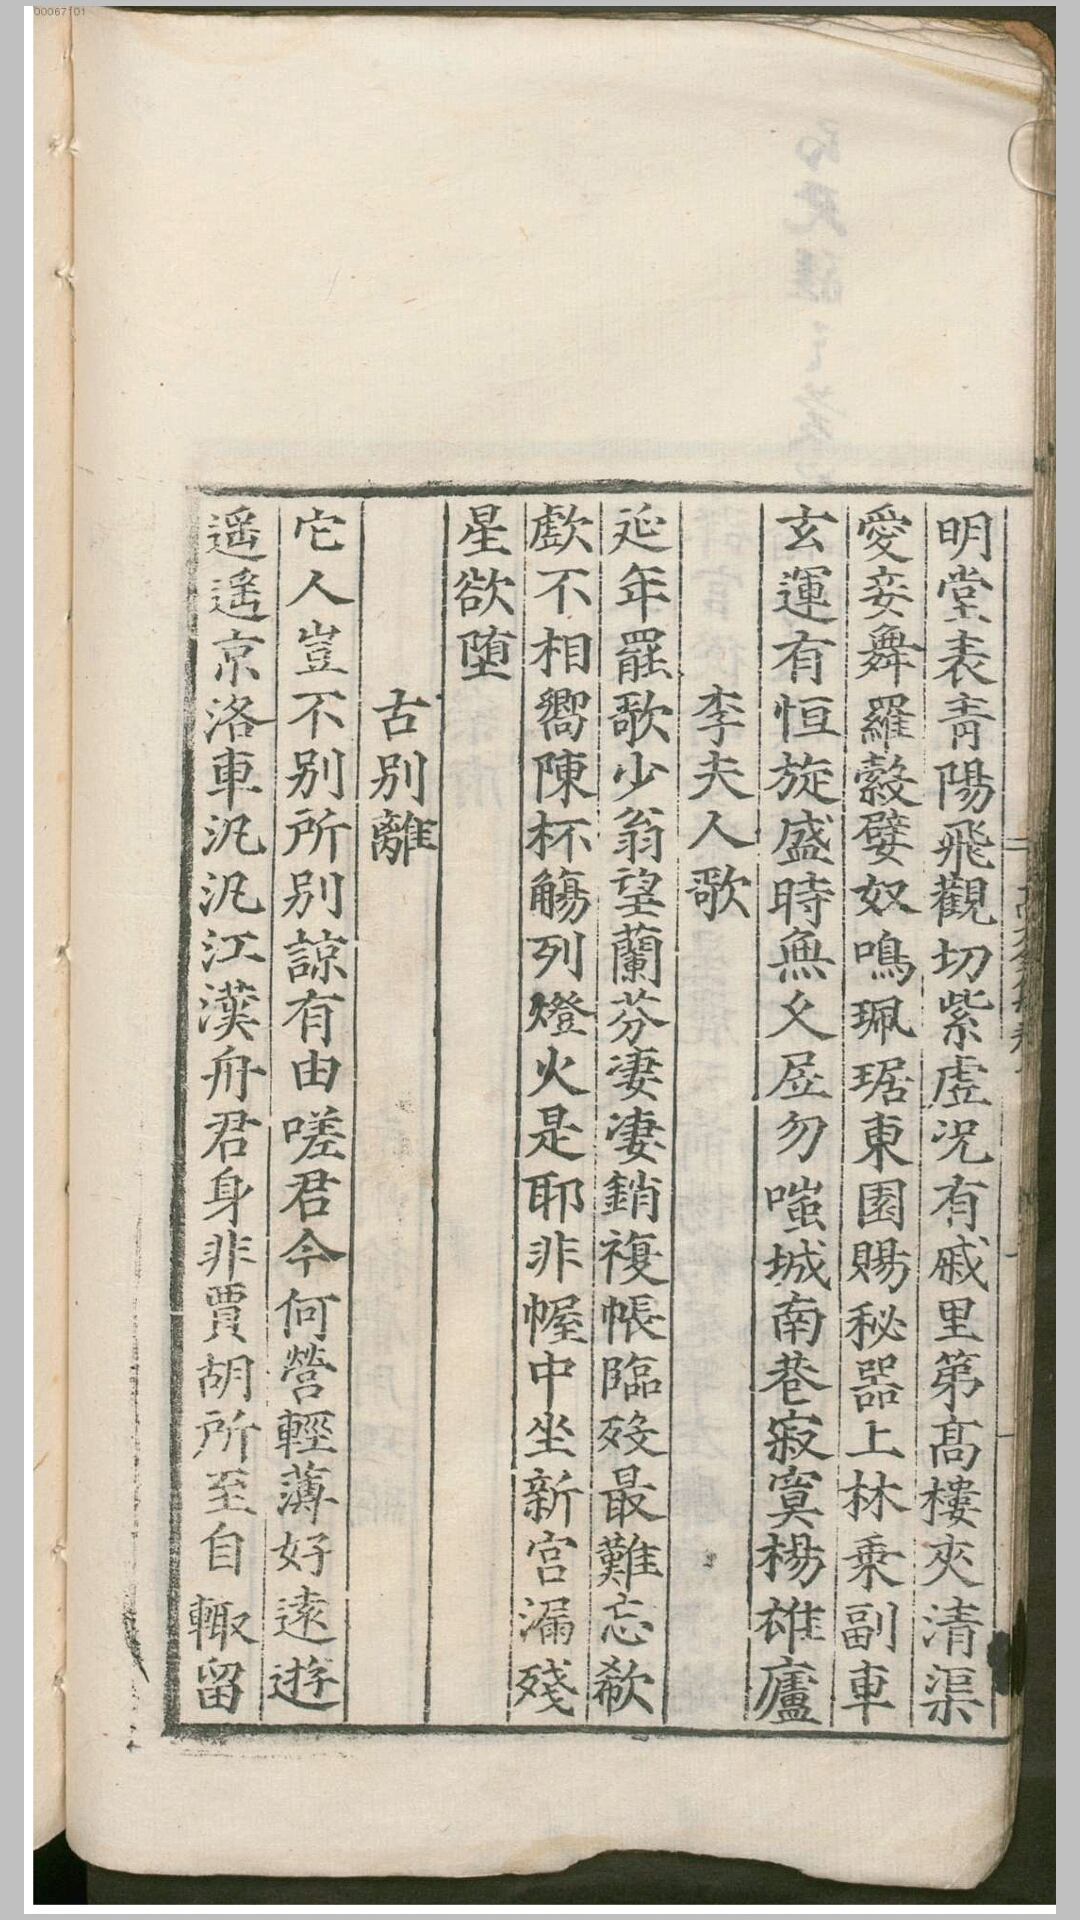 00067101
明堂表青陽飛觀切紫虛況有戚里第高樓夾清渠
愛妾舞羅縠嬖奴鳴珮琚東園賜秘器上林乗副車
玄運有恒旋盛時無久居勿嗤城南巷寂寞楊雄廬
李夫人歌
延年罷歌少翁望蘭芬凄凄銷複帳臨歿最難忘欷
歔不相嚮陳杯觴列燈火是耶非幄中坐新宮漏殘
星欲墮
古別離
它人豈不別所別諒有由嗟君今何營輕薄好遠遊
遥遥京洛車汎汎江漢舟君身非賈胡所至自輙留